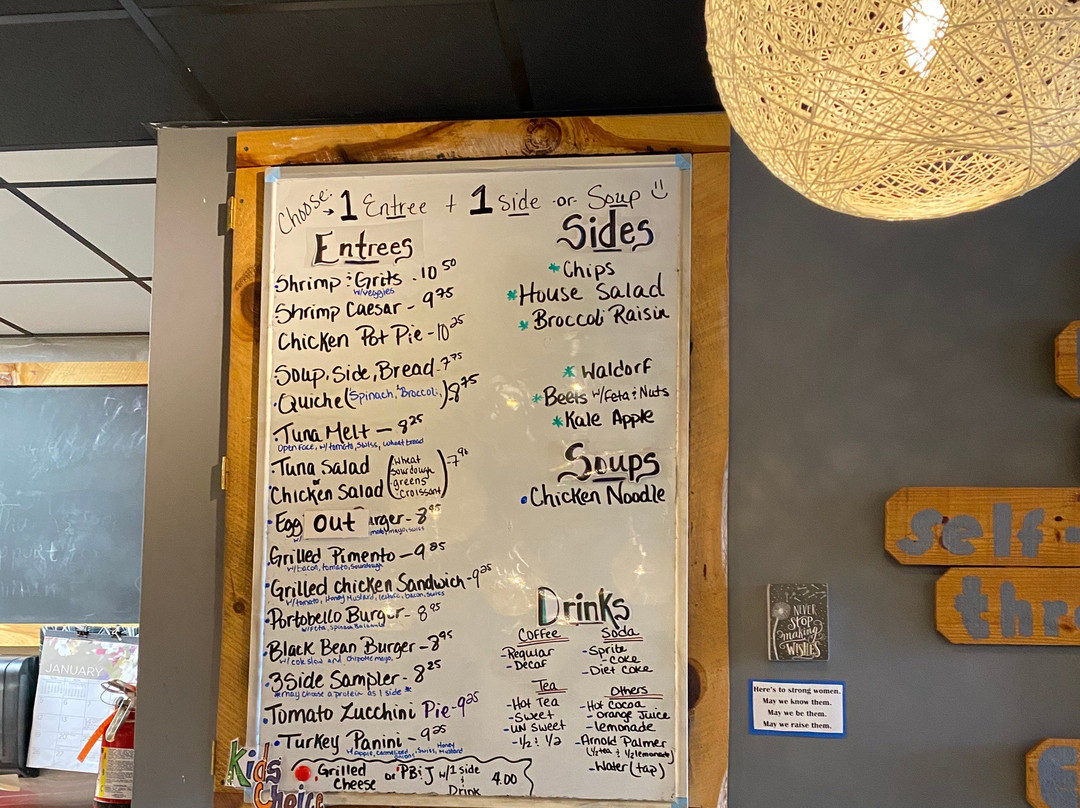 Choose: → 1 Entree + 1 Side or Soup
Entrees
Shrimp & Grits - 10 50
w/veggies
Shrimp Caesar - 9 75
Chicken Pot Pie - 10 25
Soup, Side, Bread - 7 75
Quiche (Spinach, Broccoli,) 8 75
Tuna Melt - 8 25
Open Face, w/tomato, Swiss, wheat bread
Tuna Salad
or
Chicken Salad
(wheat
sourdough
greens
croissant)
Egg out urger - 8 95
Grilled Pimento - 9 25
w/bacon, tomato, sourdough
Grilled Chicken Sandwich - 9 25
w/tomato, Honey Mustard, lettuce, bacon, swiss
Portobello Burger - 8 95
w/Feta, Spinach, Balsamic
Black Bean Burger - 8 95
w/ cole slaw and chipotle mayo
3 Side Sampler - 8 25
may choose a protein as 1 side *
Tomato Zucchini Pie - 9 25
Turkey Panini - 9 25
Swiss, Honey Mustard
Kids Choice
Grilled Cheese or PB&J w/1 side & Drink 4.00
Sides
* Chips
* House Salad
* Broccoli Raisin
* Waldorf
* Beets w/Feta & Nuts
* Kale Apple
Soups
Chicken Noodle
Drinks
Coffee
- Regular
- Decaf
Tea
- Hot Tea
- Sweet
- UN Sweet
- 1/2 & 1/2
Soda
- Sprite
- Coke
- Diet Coke
Others
- Hot Cocoa
- Orange Juice
- lemonade
- Arnold Palmer
(1/2 tea & 1/2 lemonade)
- Water (tap)
JANUARY
NEVER
STOP
making
WISHES
Here's to strong women.
May we know them.
May we be them.
May we raise them.
self-
thr